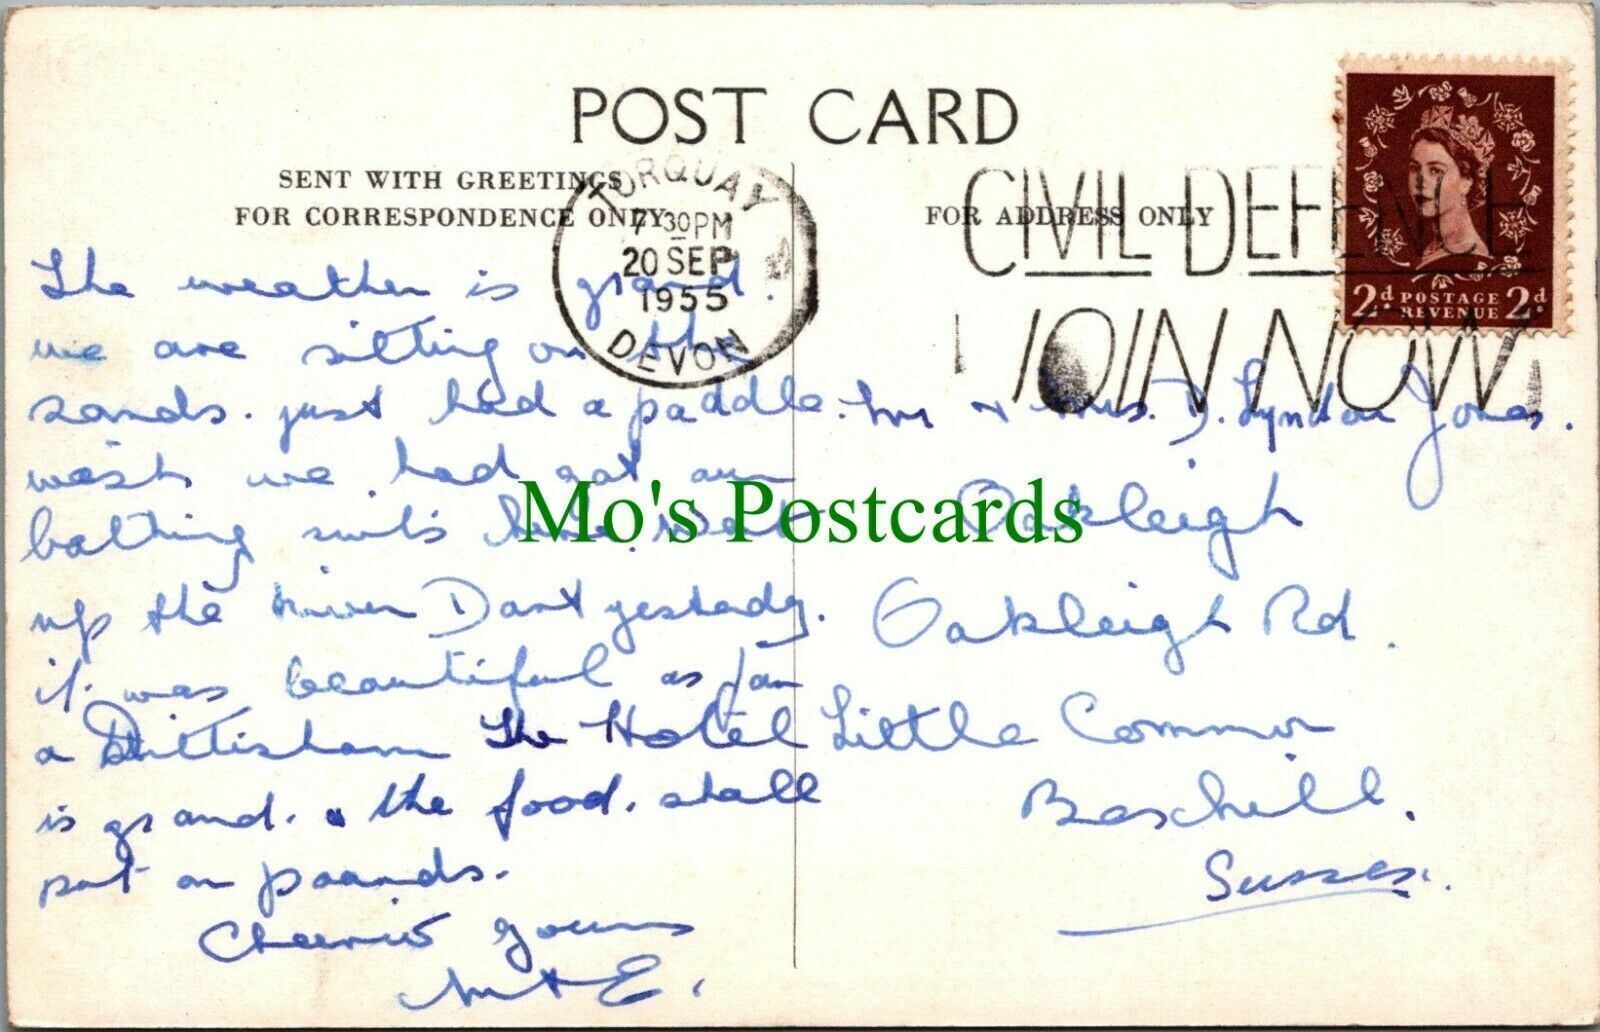 POST CARD
SENT WITH GREETINGS
FOR CORRESPONDENCE ONLY
FOR ADDRESS ONLY
TORQUAY
7 30 PM
20 SEP
1955
DEVON
CIVIL DEFENCE
JOIN NOW
2d POSTAGE REVENUE 2d
The weather is grand.
we are sitting on the
sands. just had a paddle.
wish we had got our
bathing suits here. Went
up the river Dart yesterday.
it was beautiful as far
a Dittisham The Hotel
is grand. & the food. shall
put on pounds.
Cheerio yours
M & E.
Mr & Mrs. D. Lyndon Jones.
Oakleigh
Oakleigh Rd.
Little Common
Bexhill.
Sussex.
Mo's Postcards